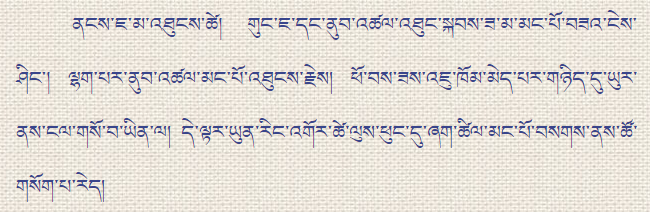 ནངས་ཇ་མ་འཐུངས་ཚེ། གུང་ཇ་དང་ནུབ་འཚལ་འཐུང་སྐབས་ཟ་མ་མང་པོ་བཟའ་ངེས་
ཤིང་། ལྷག་པར་ནུབ་འཚལ་མང་པོ་འཐུངས་རྗེས། ཕོ་བས་ཟས་འཇུ་ཁོམ་མེད་པར་གཉིད་དུ་ཡུར་
ནས་ངལ་གསོ་བ་ཡིན་ལ། དེ་ལྟར་ཡུན་རིང་འགོར་ཚེ་ལུས་ཕུང་དུ་ཞག་ཚིལ་མང་པོ་བསགས་ནས་ཚོ་
གསོག་པ་རེད།